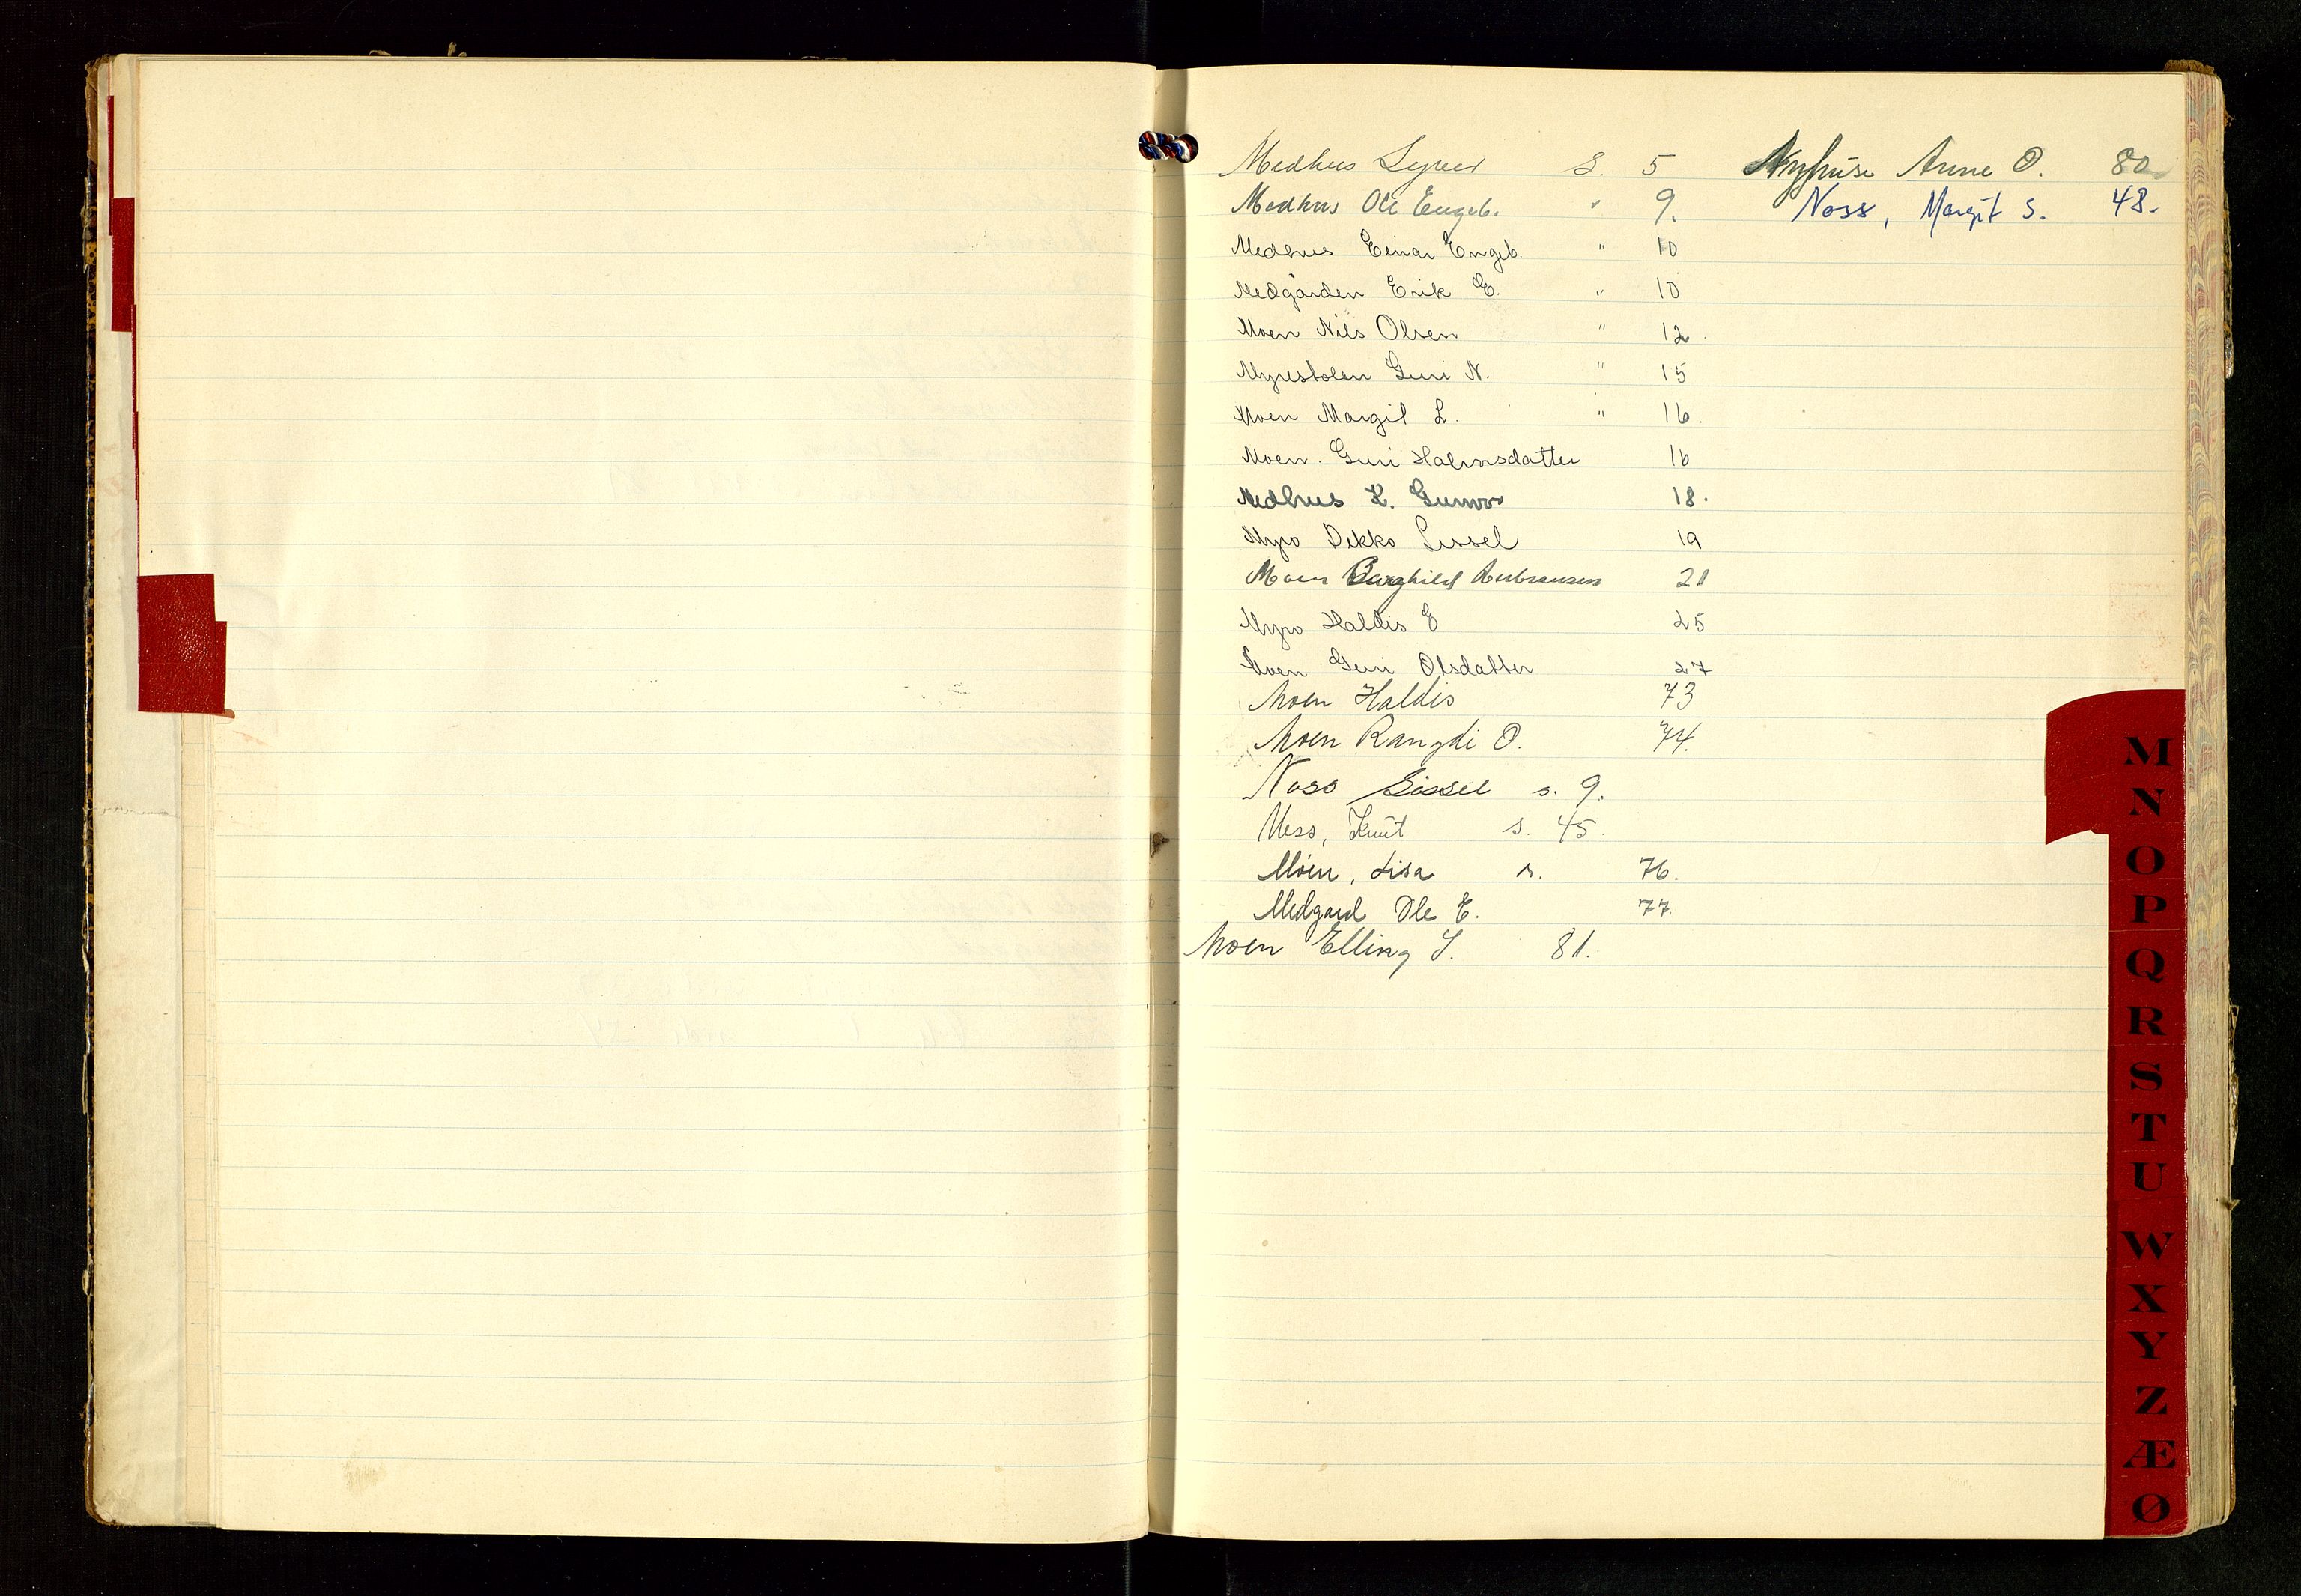 Medhus S. 5
Medhus Ole Engeb. " 9.
Medhus Einar Engeb. " 10
Medgården Erik E. " 10
Moen Nils Olsen " 12.
Myrestolen Guri N. " 15
Moen Margit L. " 16.
Moen. Guri 16
Medhus K. Gunvor 18.
Myro Dekko Sissel 19
Moen Borghild 21
Myro Haldis E 25
Moen Guri Olsdatter 27
Moen Haldis 73
Moen Rangdi O. 74.
Noss Sissel s. 9.
Ness, Knut s. 45.
Moen, Lisa s. 76.
Medgard Ole E. 77.
Moen Elling S. 81.
Nyhuse Anne O. 80
Noss, Margit S. 48.
M
N
O
P
Q
R
S
T
U
W
X
Y
Z
Æ
Ø